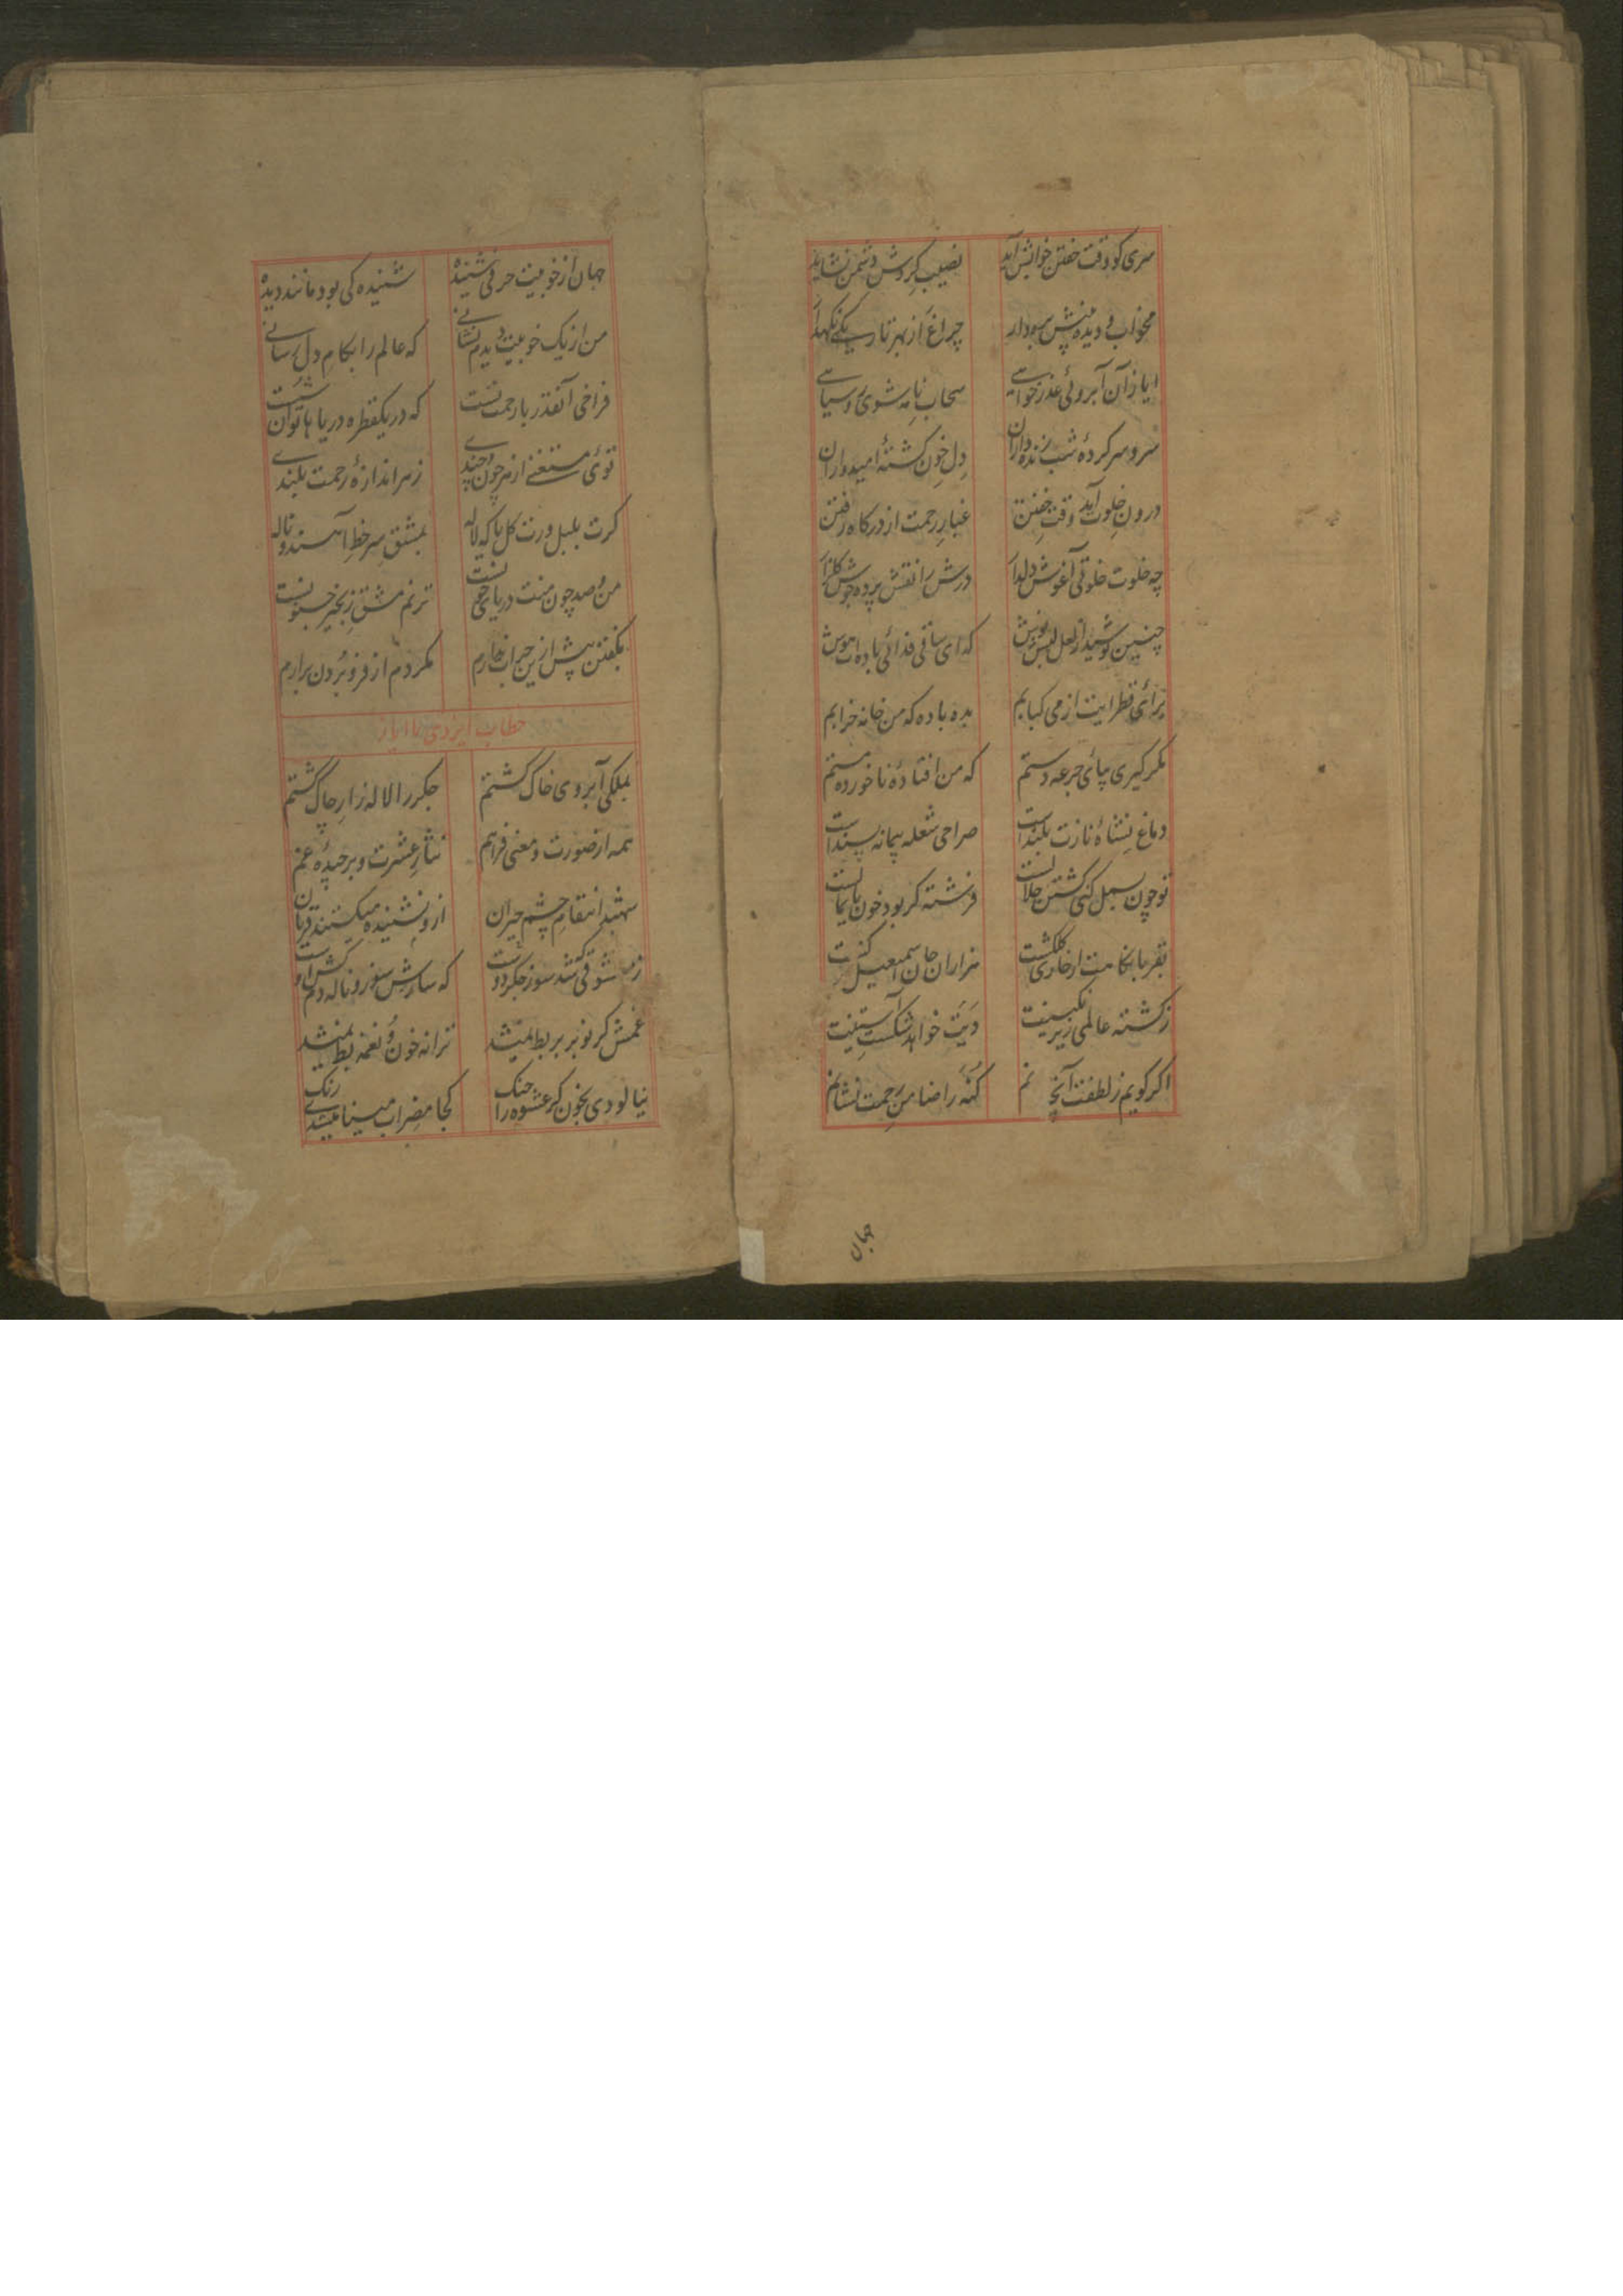 سری کو وقت خفتن خوابش آید نصیب گردش دشمن نشاید
مخواب دیده منش سودار چراغ از بهر تاریکی نگهدار
ایاز آن آبروئی عذر خواهی سحاب نامه شوی روسیاهی
سر و سرکردهٔ شب زنده داران دل خون گشتهٔ امیدواران
درون خلوت آید وقت خفتن غبار رحمت از درگاه رفتن
چه خلوت خلوتی آغوش دلدار درش را نقش پرده جوش گلزار
چنین نوشید از لعل لبش نوش که ای ساقی فدائی باده ات هوش
برای قطره ایت از می کبابم بده باده که من خانه خرابم
مگر گیری بپای جرعه دستم که من افتادهٔ ناخورده مستم
دماغ نشاهٔ نازت بلند است صراحی شعله پیمانه سپند است
تو چون بسمل کنی کشتن حلالست فرشته گر بود خون پایمالست
بقربانگاهت از گلگشت هزاران جان اسمعیل
ز کشته عالمی زیر نگینت دیت خواهد شکست آستینت
اگر گویم ز لطفت آنچه گنه را ضامن رحمت نشانم
جهان
جهان از خوبیت حرفی شنیده شنیده کی بود مانند دیده
من از یک خوبیت دیدم نشانی که عالم را بکام دل رسانی
فراخی آنقدر با رحمتست که در یکقطره دریاها توان شست
توئی مستغنی از هر چون و چندی ز هر اندازهٔ رحمت بلندی
گرت بلبل ورت گل یا که لاله بمشق سر خط آهند و ناله
من و صد چون منت دریای جویست ترنم مشق زنجیر
بگفتن بیش ازین جرات ندارم مگر دم از فرو بردن برارم
خطاب ایزدی با ایاز
بملکی آبروی خاک گشتم جگر را لاله زار چاک گشتم
همه از صورت و معنی فراهم نثار عشرت و برچیدهٔ غم
شهید انتقام چشم حیران ازو نشنیده میکشتند قربان
ز شوقی که شد سوز جگر دوست که سازش سوز و ناله دمکش اوست
غمش گر نوبر بربط نمیشد ترانه خون و نغمه بط نمیشد
نیالودی بخون گر عشوه را چنک کجا مضراب مینا میشدی رنک